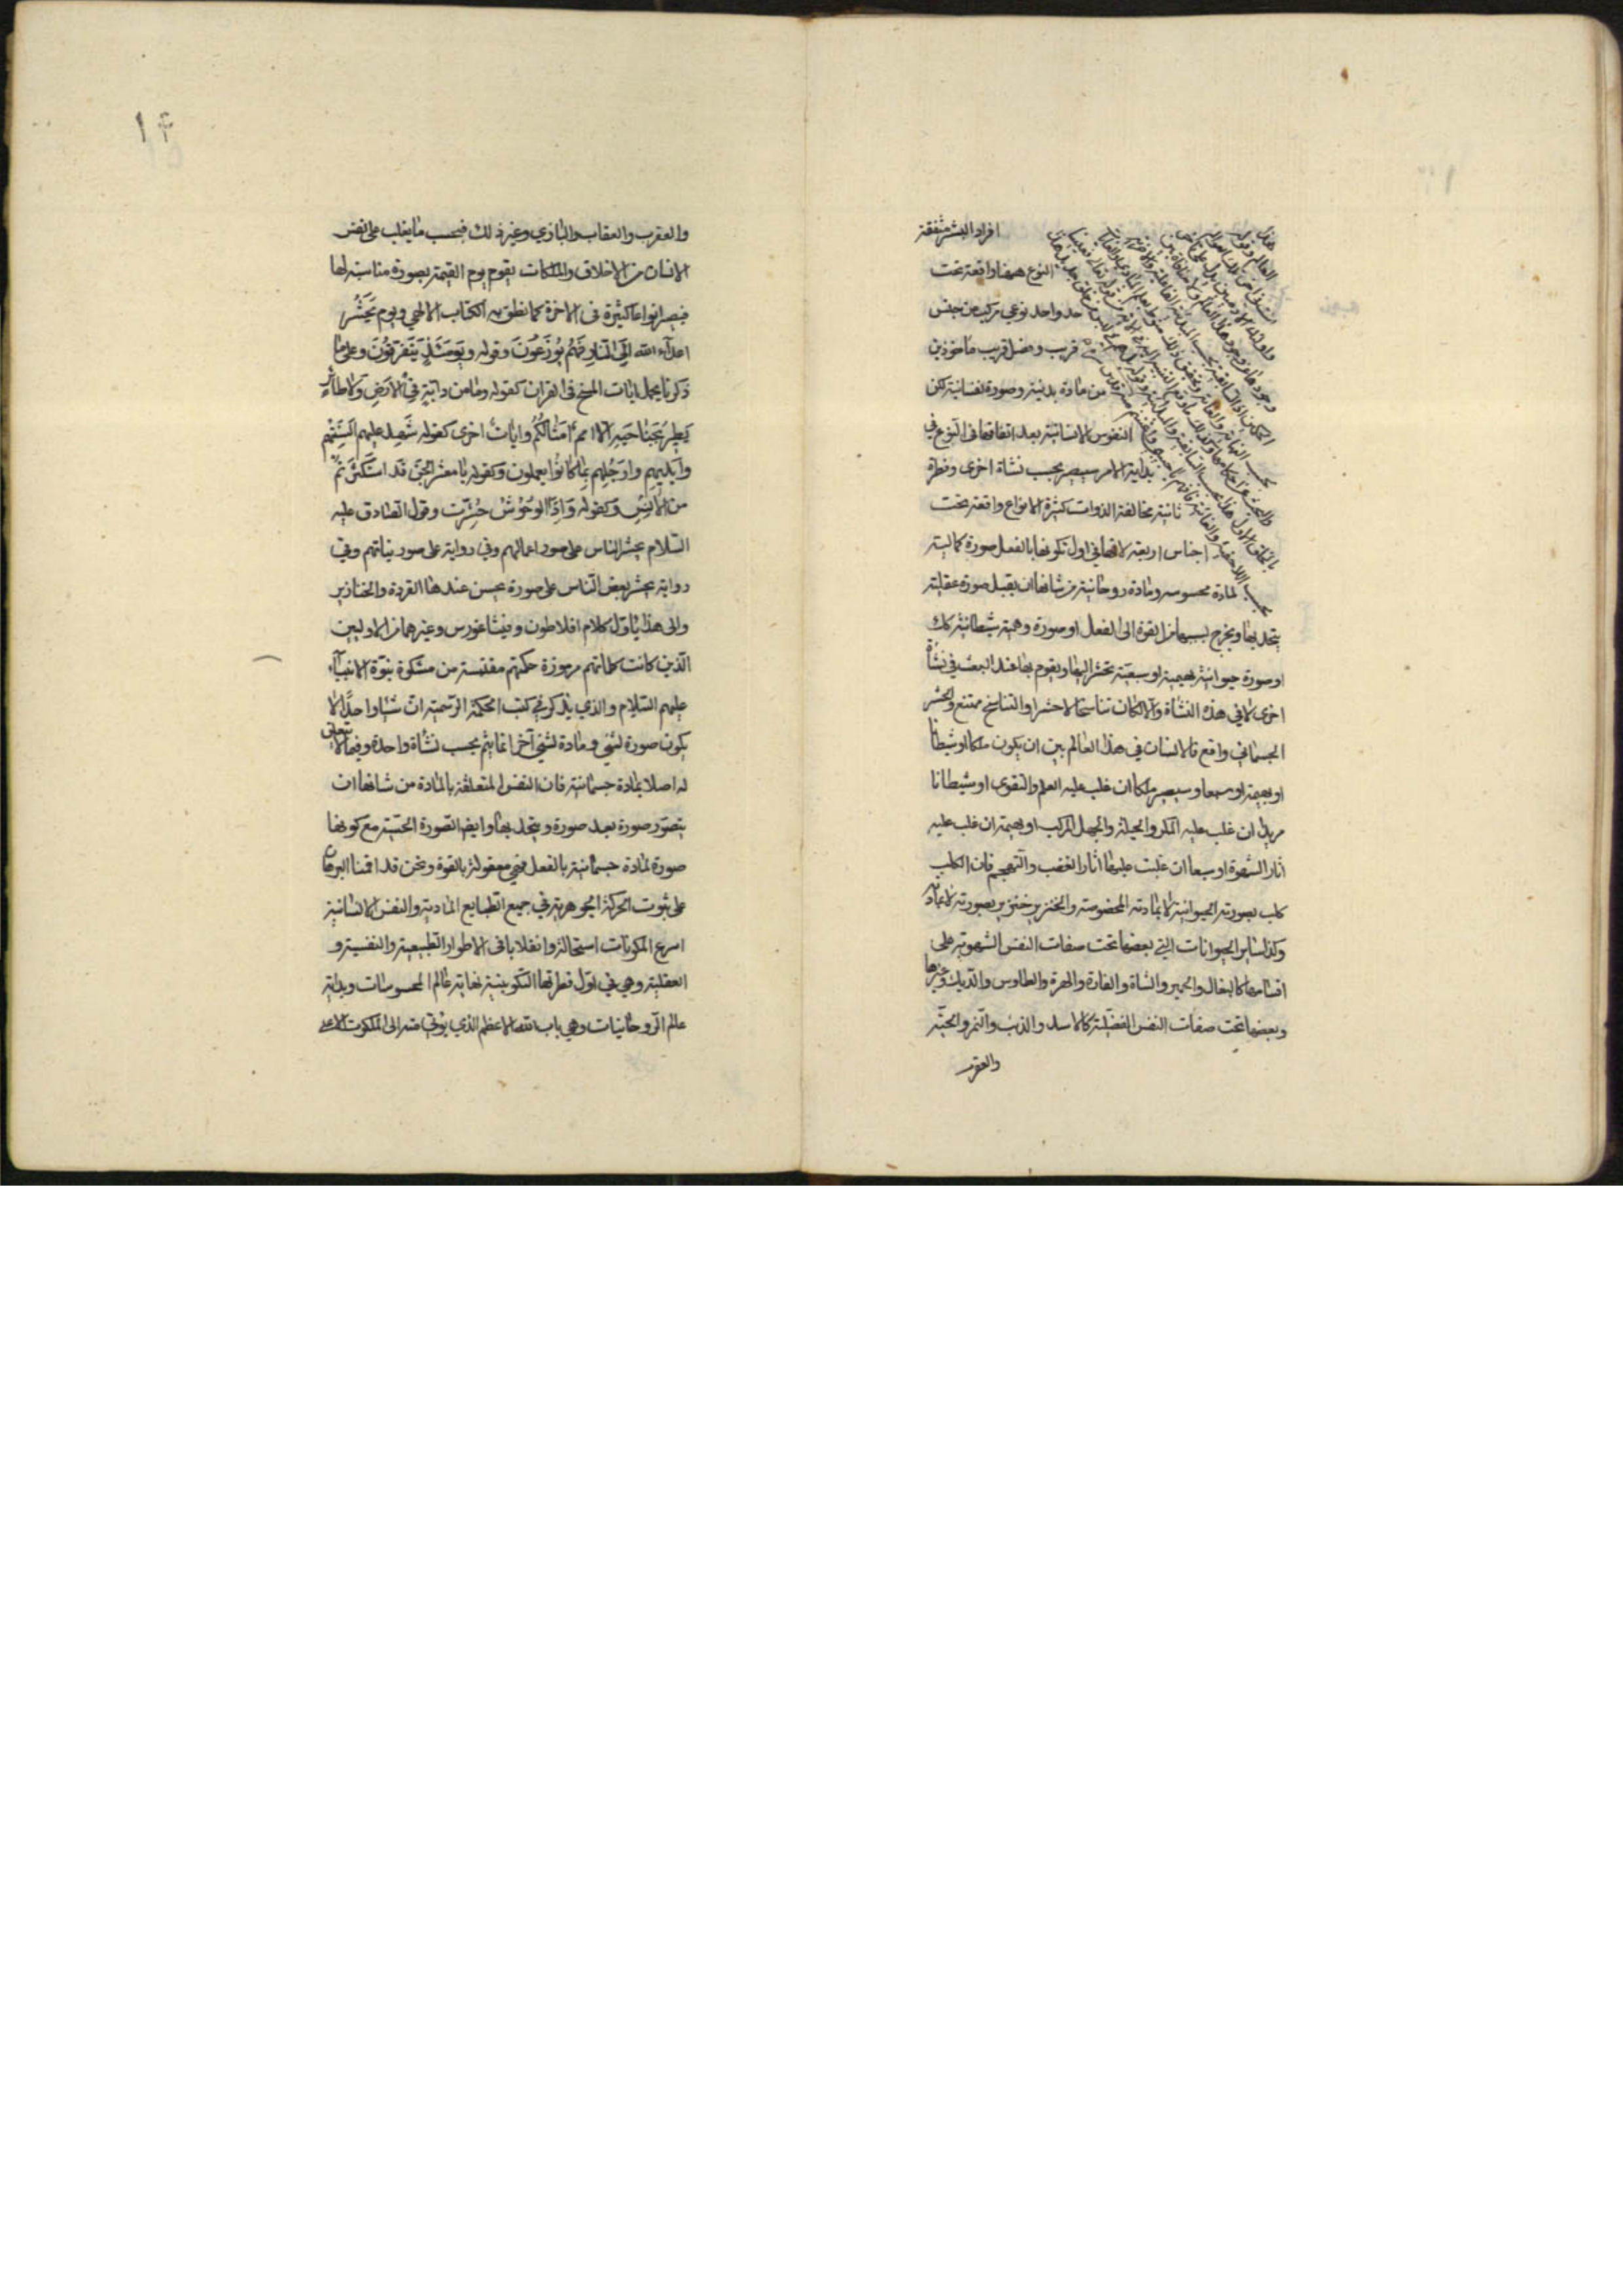 افراد البشر متفقة
النوع ههنا واقعة تحت
حد واحد نوعي مركب من جنس
قريب وفصل قريب ماخوذين
من مادة بدنية وصورة نفسانية لكن
النفوس الانسانية بعد اتفاقها في النوع في
بداية الامر سيصير بحسب نشأة اخرى وفطرة
ثانية مخالفة الذوات كثيرة الانواع واقعة تحت
اجناس اربعة لانها في اول تكونها بالفعل صورة كمالية
لمادة محسوسه ومادة روحانية من شانها ان يقبل صورة عقلية
يتحد بها ويخرج بسببها من القوة الى الفعل او صورة وهمية شيطانية كك
او صورة حيوانية بهيمية او سبعية تحشر اليها ويقوم بها عند البعث في نشأة
اخرى لا في هذه النشأة والا لكان تناسخا لا حشرا والتناسخ ممتنع والحشر
الجسماني واقع فالانسان في هذا العالم بين ان يكون ملكا او شيطانا
او بهيمة او سبعا وسيصير ملكا ان غلب عليه العلم والتقوى او شيطانا
مريدا ان غلب عليه المكر والحيلة والجهل المركب او بهيمة ان غلب عليه
اثار الشهوة او سبعا ان غلبت عليها اثار الغضب والتهجم فان الكلب
كلب بصورته الحيوانية لا بمادته المخصوصة والخنزير خنزير بصورته لا بمادته
وكذا ساير الحيوانات التي بعضها تحت صفات النفس الشهوية على
اقسامها كالبغال والحمير والشاة والفارة والهرة والطاوس والديك وغيرها
وبعضها تحت صفات النفس الغضبية كالاسد والذئب والنمر والحية
والعقرب
١٤
والعقرب والعقاب والبازي وغير ذلك فبحسب ما يغلب على نفس
الانسان من الاخلاق والملكات يقوم يوم القيمة بصورة مناسبة لها
فيصير انواعا كثيرة في الاخرة كما نطق به الكتاب الالهي ويوم يَحْشُرُ
اعدآء الله الَى النّارِ فَهُم يُوزَعُونَ وقوله ويَومَئذٍ يَتَفَرَّقُونَ وعلى ما
ذكرنا يحمل ايات المسخ في القران كقوله وما من دابّةٍ في الارَضِ وَلا طائر
يَطِيرُ بجَناحَيهِ الّا اممٌ امثالُكُم واياتٌ اخرى كقوله شَهِدَ عليهم السِنَتُهُم
وايَديهِم وارجُلِهم بِما كانوُا يعملون وكقوله يا معشر الجِنّ قَد استَكثَرتُم
من الانِسِ وكقوله وَاذِا الوُحُوشُ حُشِرَت وقول الصادق عليه
السّلام يحشر الناس على صور اعمالهم وفي رواية على صور نياتهم وفي
رواية يحشر بعض النّاس على صورة يحسن عندها القردة والخنازير
والى هذا يأوّل كلام افلاطون وفيثاغورس وغيرهما من الاولين
الّذين كانت كلماتهم مرموزة حكمتهم مقتبسة من مشكوة نبوّة الانبيآء
عليهم السّلام والذي يذكر في كتب الحكمة الرّسمية انّ شيئا واحدًا لا
يكون صورة لشيء ومادة لشيء آخر انما يتم بحسب نشأة واحدة وفيما لا تعلق
له اصلا بمادة جسمانية فان النفس المتعلقة بالمادة من شانها ان
يتصوّر صورة بعد صورة ويتحد بها وايضا الصورة الحسّية مع كونها
صورة لمادة جسمانية بالفعل فهي معقولة بالقوة ونحن قد اقمنا البرهان
على ثبوت الحركة الجوهرية في جميع الطبايع المادية والنفس الانسانية
اسرع المكونات استحالة وانقلابا في الاطوار الطبيعية والنفسية و
العقلية وهي في اول فطرتها التكوينية نهاية عالم المحسوسات وبداية
عالم الرّوحانيات وهي باب الله الاعظم الذي يؤتى منه الى الملكوت الاعلى